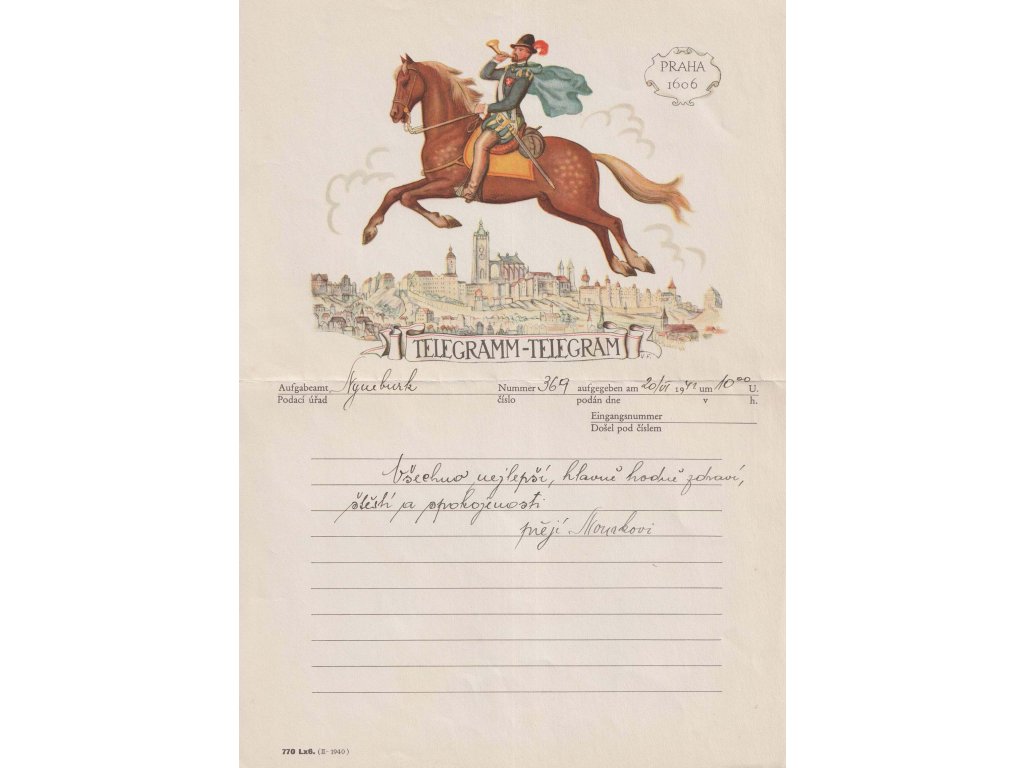 PRAHA
1606
TELEGRAMM-TELEGRAM
V.F.
Aufgabeamt Nymburk Nummer 369 aufgegeben am 20/VI 1942 um 10 00 U.
Podací úřad číslo podán dne v h.
Eingangsnummer
Došel pod číslem
Všechno nejlepší, hlavně hodně zdraví,
štěstí a spokojenosti
přejí Mourkovi
770 Lx6. (II-1940)